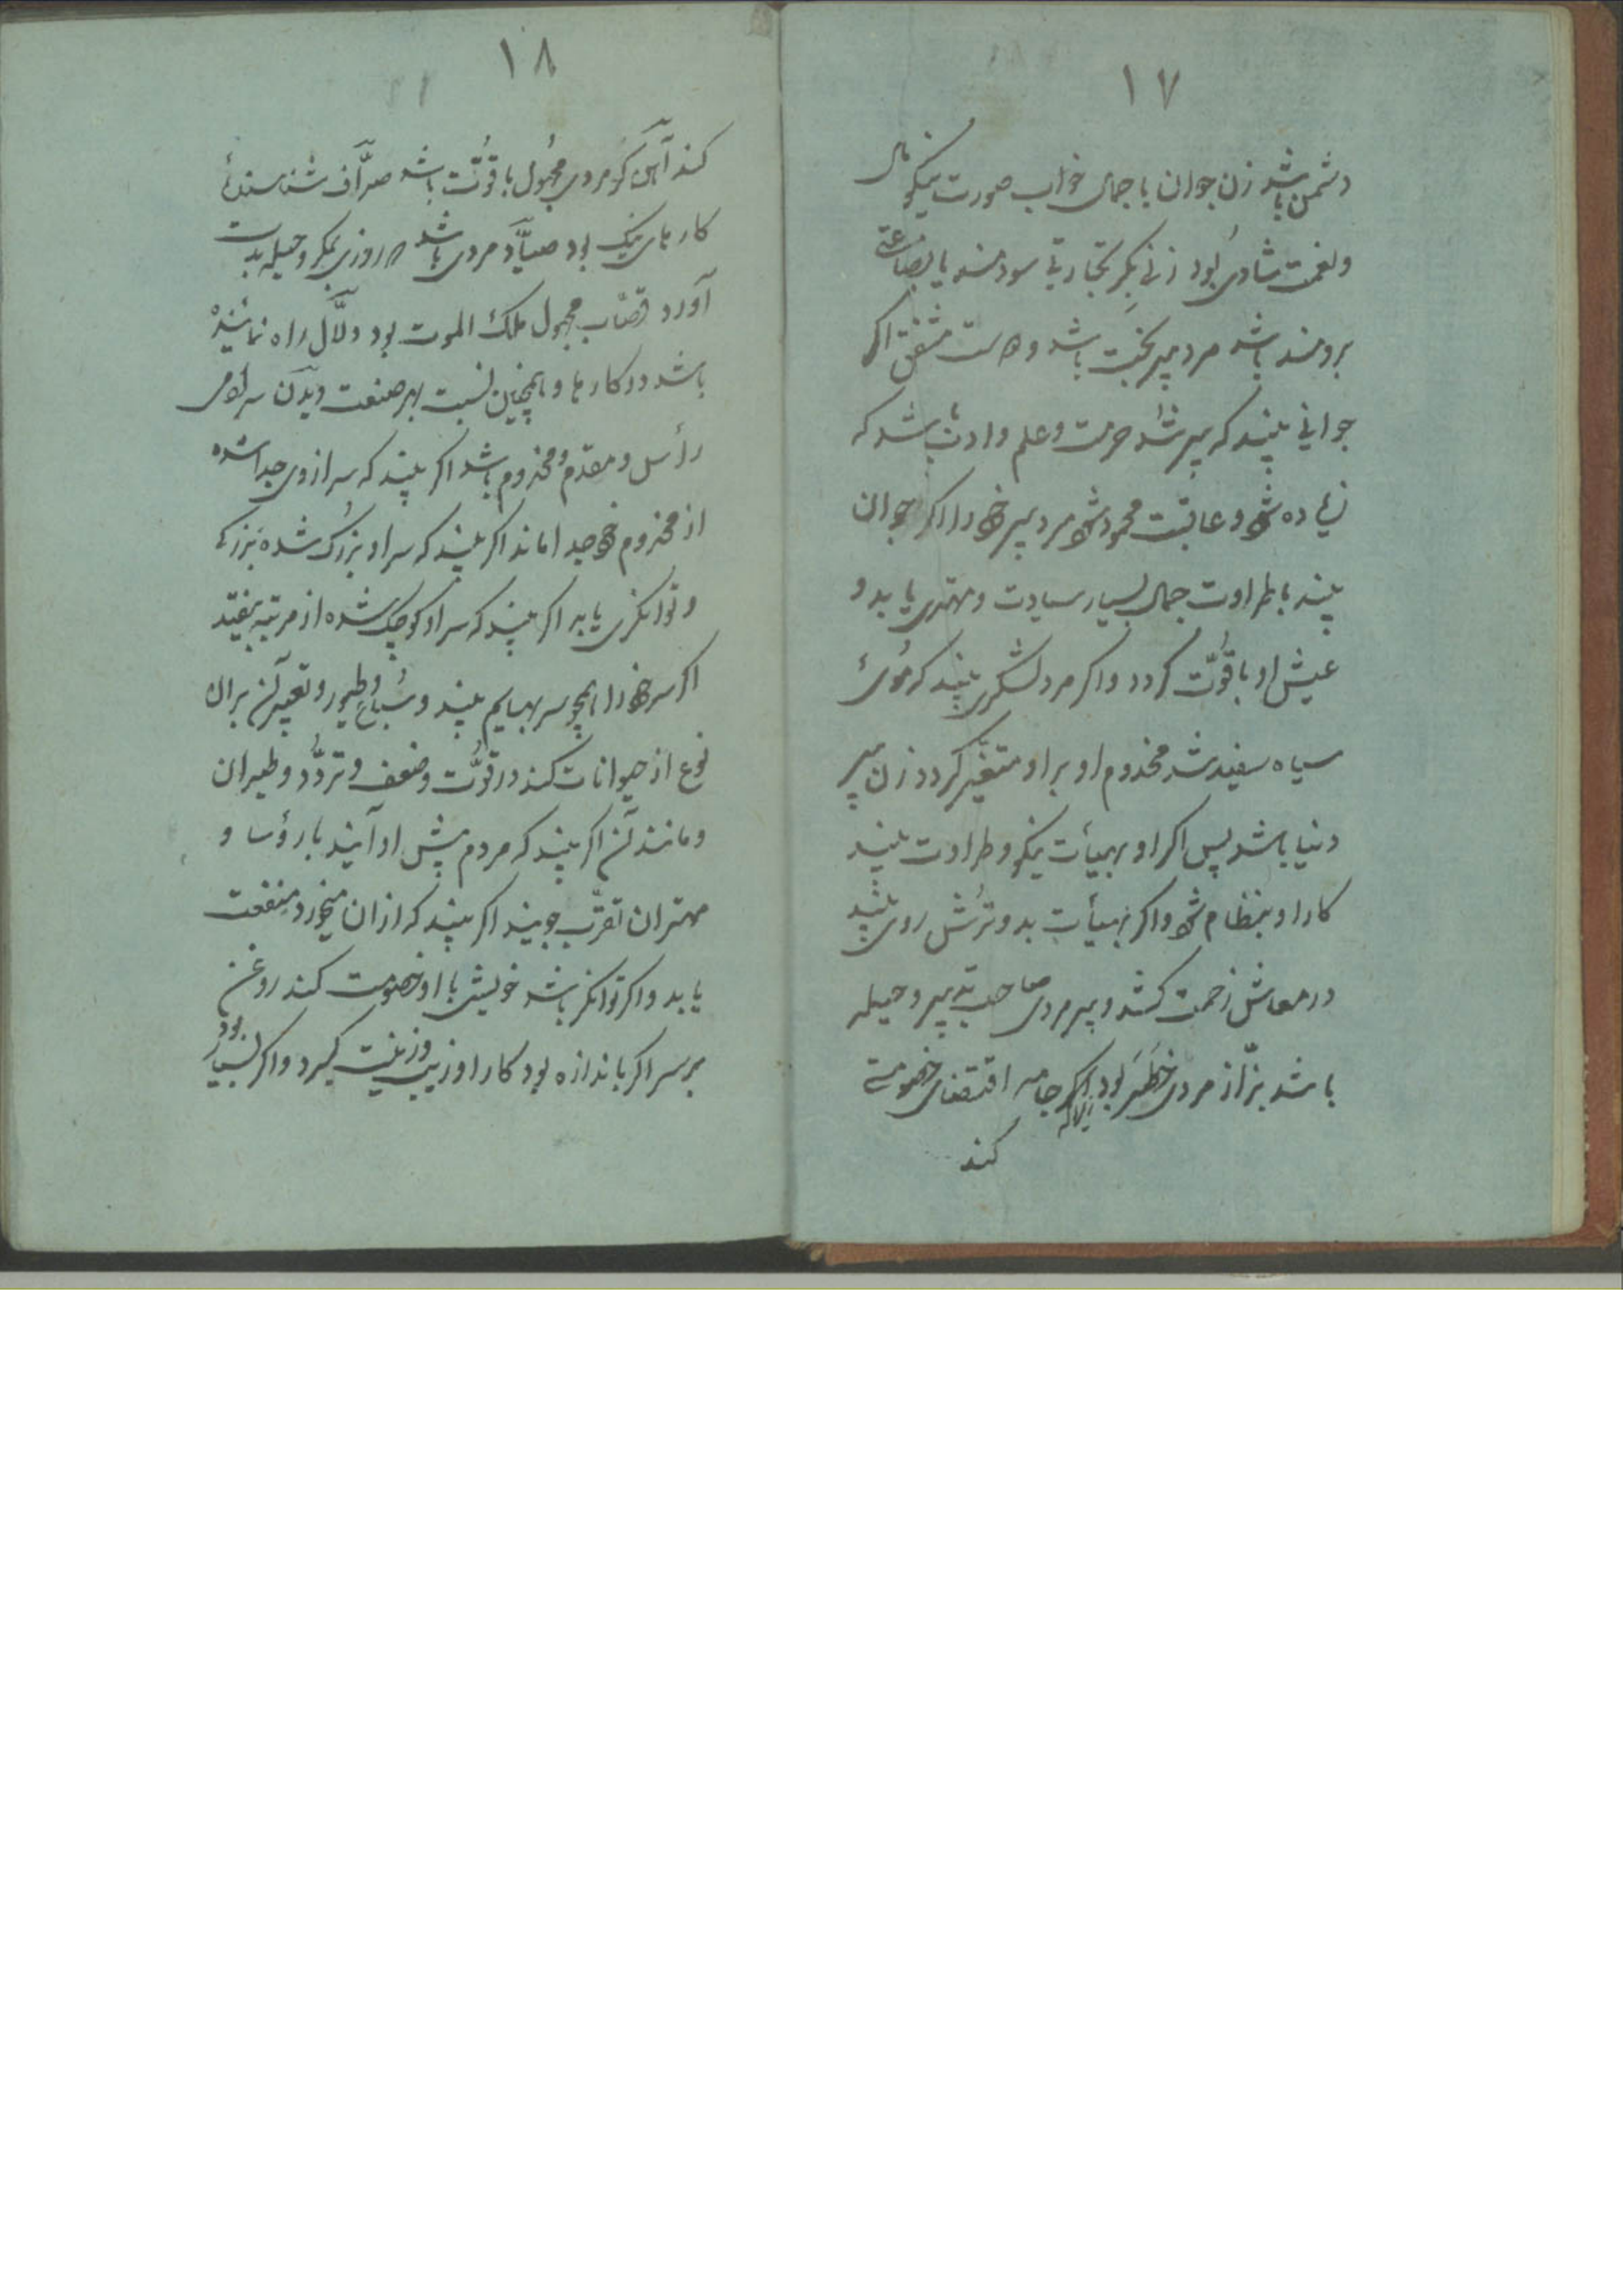 ١٧
دشمن باشد زن جوان با جمال خواب صورت نیکو مال
و نعمت شادی بُود زنی بکر تجارتی سودمند یا بضاعتی
برومند باشد مرد پیر بخت باشد و دوست مشفق اکر
جوانی بیند که پیر شد حرمت و علم و ادبش باشد که
زیاده شود و عاقبت محمود شود مرد پیر خود را اکر جوان
بیند با طراوت جمال بسیار سیادت و مهتری یابد و
عیش او با قوّت کردد و اکر مرد لشکری بیند که موی
سیاه سفید شد مخدوم او بر او متغیّر کردد زن پیر
دنیا باشد پس اکر او بهیأت نیکو و طراوت بیند
کار او بنظام شود و اکر بهیأت بد و تُرش روی بیند
در معاش زحمت کشد و پیر مردی صاحب تدبیر و حیله
باشد بزّاز مردی خطیر بود اکر جامه اقتضای خصومتی
کند
١٨
کند آهن کر مردی مجهول با قوّت باشد صرّاف شناسندهٔ
کارهای نیک بود صیّاد مردی باشد که روزی بمکر و حیله بدست
آورد قصّاب مجهول ملک الموت بود دلّال راه نماینده
باشد در کارها و همچنین نسبت بهر صنعت دیدن سر آدمی
رأس و مقدم و مخدوم باشد اکر بیند که سر از وی جدا شده
از مخدوم خود جدا ماند اکر بیند که سر او بزرک شده بزرکی
و توانکری یابد اکر بیند که سر او کوچک شده از مرتبه بیفتد
اکر سر خود را همچو سر بهایم بیند و سُباع و طیور و تعبیر آن بر آن
نوع از حیوانات کند در قوّت و ضعف و تردّد و طیران
و مانند آن اکر بیند که مردم پیش او آیند با رؤسا و
مهتران تقرّب جویند اکر بیند که از ان میخورد منفعت
یابد و اکر توانکر باشد خویشی با او خصومت کند روغن
بر سر اکر باندازه بود کار او زیب و زینت کیرد و اکر بسیار بود